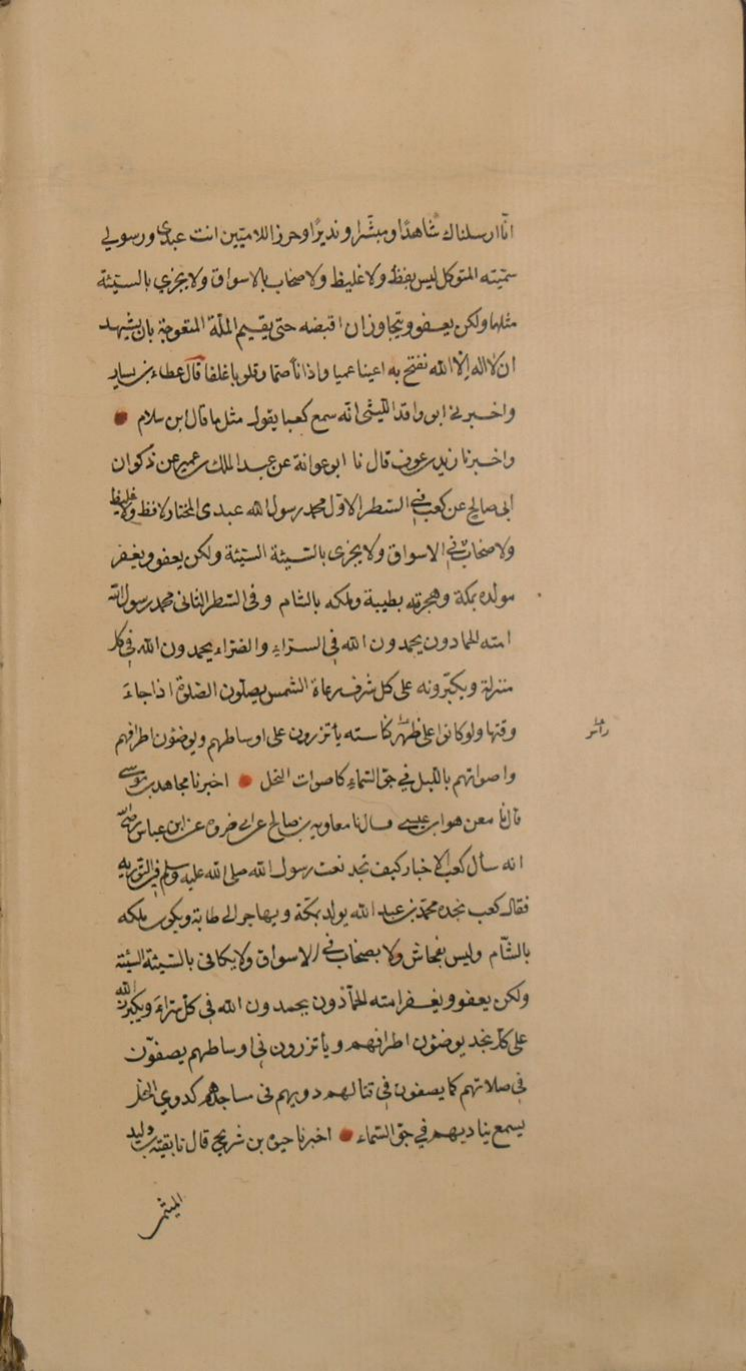 انّا ارسلناك شاهدًا ومبشّرا ونذيرًا وحرزا للاميّين انت عبدى ورسولي
سمّيته المتوكل ليس بفظ ولا غليظ ولا صخاب بالاسواق ولا يجزي بالسيّئة
مثلها ولكن يعفو ويتجاوز ان اقبضه حتى يقيم الملّة المتعوجة بان يشهد
ان لا اله الّا الله نفتح به اعينا عميا واذانا صما وقلوبا غلفا قال عطاء بن يسار
واخبرنى ابو واقد الليثى انّه سمع كعبا يقول مثل ما قال ابن سلام
واخبرنا زيد بن عوف قال نا ابو عوانة عن عبد الملك بن عمير عن ذكوان
ابى صالح عن كعب في السّطر الاوّل محمد رسول الله عبدى المختار لا فظ ولا غليظ
ولا صخاب في الاسواق ولا يجزى بالسّيئة السّيّئة ولكن يعفو ويغفر
مولده بمكة وهجرته بطيبة وملكه بالشام وفى السّطر الثانى محمد رسول الله
امته الحمادون يحمدون الله في السرّاء والضرّاء يحمدون الله في كل
منزلة ويكبّرونه على كل شرف رعاة الشمس يصلّون الصّلوة اذا جاء
وقتها ولو كانوا على ظهر كناسته يأتزرون على اوساطهم ويوضئون اطرافهم
واصواتهم بالليل في جوّ السّماء كاصوات النحل اخبرنا مجاهد بن موسى
قال نا معن هو ابن عيسى قال نا معاوية بن صالح عن ابى فروة عن ابن عباس
انه سأل كعب الاخبار كيف تجد نعت رسول الله صلى الله عليه وسلم في التورية
فقال كعب نجده محمّد بن عبد الله يولد بمكّة ويهاجر الى طابة ويكون ملكه
بالشّام وليس بفحاش ولا بصخاب في الاسواق ولا يكافى بالسّيئة السّيئة
ولكن يعفو ويغفر امته الحمّادون يحمدون الله في كلّ سراء ويكبرون الله
على كل نجد يوضئون اطرافهم ويأتزرون في اوساطهم يصفوّن
في صلاتهم كما يصفون في قتالهم دويهم في مساجدهم كدوي النحل
يسمع مناديهم في جوّ السّماء اخبرنا حيوة بن شريح قال نا بقية بن وليد
الميثمى